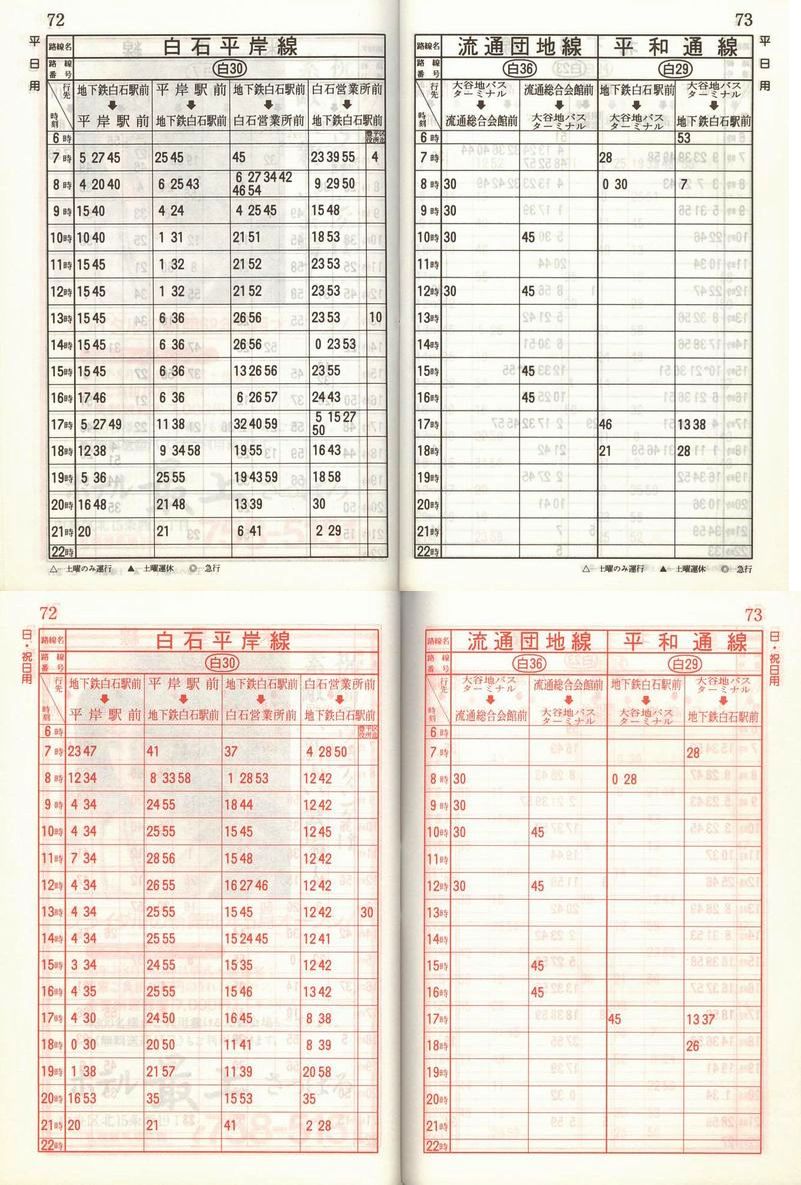 72
平日用
路線名 白石平岸線
路線番号 白30
行先 時刻 地下鉄白石駅前 ➡ 平岸駅前 平岸駅前 ➡ 地下鉄白石駅前 地下鉄白石駅前 ➡ 白石営業所前 白石営業所前 ➡ 地下鉄白石駅前
6時
7時 5 27 45 25 45 45 23 39 55 4
8時 4 20 40 6 25 43 6 27 34 42 46 54 9 29 50
9時 15 40 4 24 4 25 45 15 48
10時 10 40 1 31 21 51 18 53
11時 15 45 1 32 21 52 23 53
12時 15 45 1 32 21 52 23 53
13時 15 45 6 36 26 56 23 53 10
14時 15 45 6 36 26 56 0 23 53
15時 15 45 6 36 13 26 56 23 55
16時 17 46 6 36 6 26 57 24 43
17時 5 27 49 11 38 32 40 59 5 15 27 50
18時 12 38 9 34 58 19 55 16 43
19時 5 36 25 55 19 43 59 18 58
20時 16 48 21 48 13 39 30
21時 20 21 6 41 2 29
22時
△ 土曜のみ運行 ▲ 土曜運休 ◎ 急行
73
平日用
路線名 流通団地線 平和通線
路線番号 白36 白29
行先 時刻 大谷地バスターミナル ➡ 流通総合会館前 流通総合会館前 ➡ 大谷地バスターミナル 地下鉄白石駅前 ➡ 大谷地バスターミナル 大谷地バスターミナル ➡ 地下鉄白石駅前
6時 53
7時 28
8時 30 0 30 7
9時 30
10時 30 45
11時
12時 30 45
13時
14時
15時 45
16時 45
17時 46 13 38
18時 21 28
19時
20時
21時
22時
△ 土曜のみ運行 ▲ 土曜運休 ◎ 急行
72
日・祝日用
路線名 白石平岸線
路線番号 白30
行先 時刻 地下鉄白石駅前 ➡ 平岸駅前 平岸駅前 ➡ 地下鉄白石駅前 地下鉄白石駅前 ➡ 白石営業所前 白石営業所前 ➡ 地下鉄白石駅前
6時
7時 23 47 41 37 4 28 50
8時 12 34 8 33 58 1 28 53 12 42
9時 4 34 24 55 18 44 12 42
10時 4 34 25 55 15 45 12 45
11時 7 34 28 56 15 48 12 42
12時 4 34 26 55 16 27 46 12 42
13時 4 34 25 55 15 45 12 42 30
14時 4 34 25 55 15 24 45 12 41
15時 3 34 24 55 15 35 12 42
16時 4 35 25 55 15 46 13 42
17時 4 30 24 50 16 45 8 38
18時 0 30 20 50 11 41 8 39
19時 1 38 21 57 11 39 20 58
20時 16 53 35 15 53 35
21時 20 21 41 2 28
22時
73
日・祝日用
路線名 流通団地線 平和通線
路線番号 白36 白29
行先 時刻 大谷地バスターミナル ➡ 流通総合会館前 流通総合会館前 ➡ 大谷地バスターミナル 地下鉄白石駅前 ➡ 大谷地バスターミナル 大谷地バスターミナル ➡ 地下鉄白石駅前
6時
7時 28
8時 30 0 28
9時 30
10時 30 45
11時
12時 30 45
13時
14時
15時 45
16時 45
17時 45 13 37
18時 26
19時
20時
21時
22時